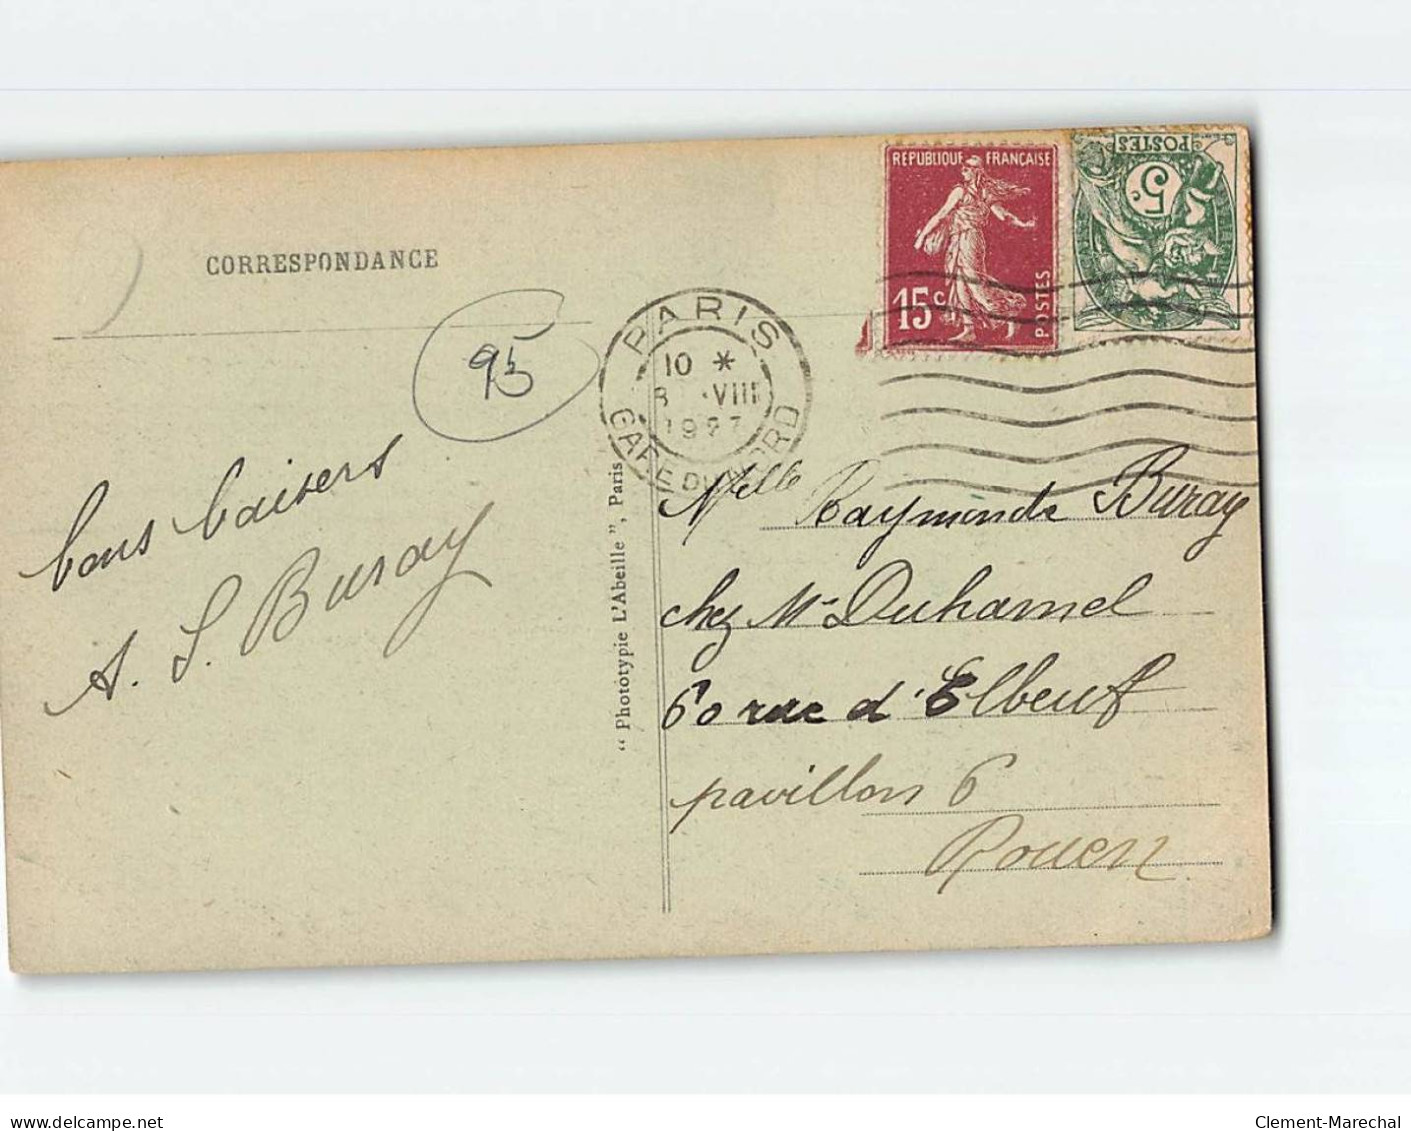 CORRESPONDANCE
95
bons baisers
A. S. Buray
" Phototypie L'Abeille ", Paris
REPUBLIQUE FRANÇAISE
15c
POSTES
POSTES
5c
PARIS
10 *
VIII
1927
GARE DU NORD
Melle Raymonde Buray
chez Mr Duhamel
60 rue d'Elbeuf
pavillon 6
Rouen
www.delcampe.net
Clement-Marechal